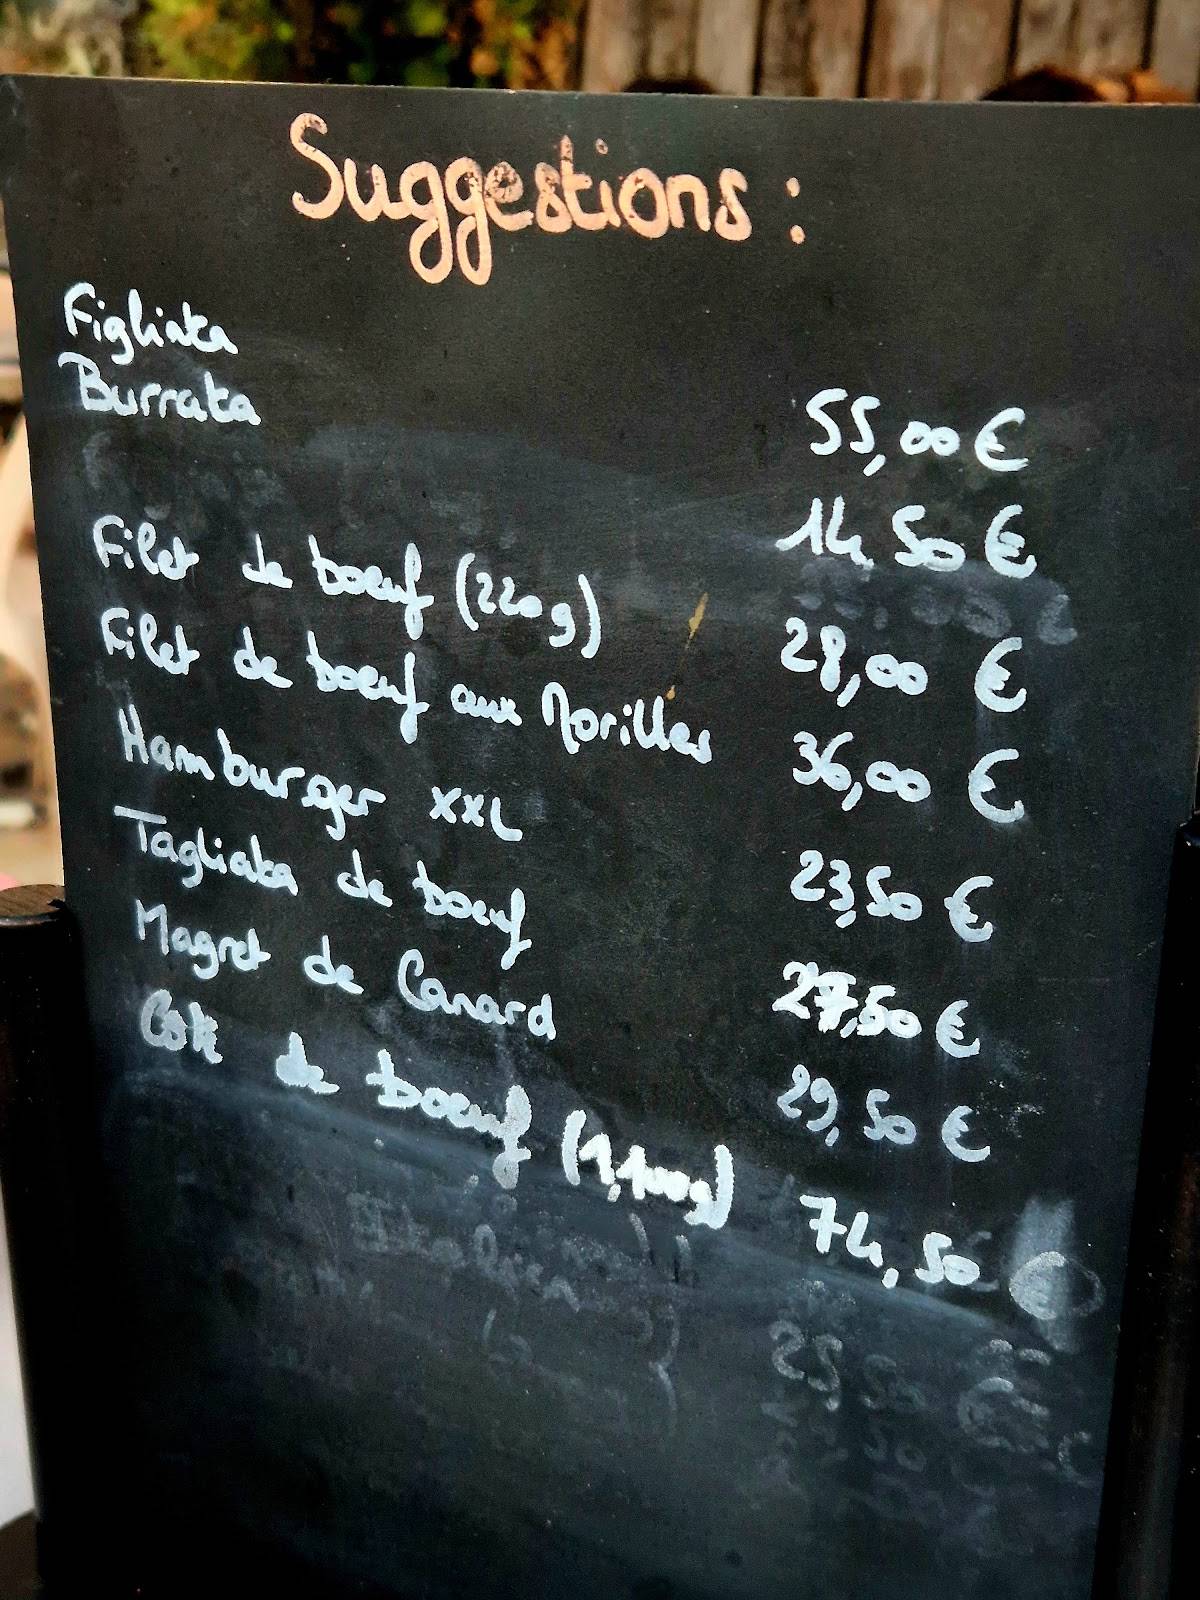 Suggestions :
Figliata 55,00 €
Burrata 14,50 €
Filet de bœuf (220g) 28,00 €
Filet de bœuf aux Morilles 36,00 €
Hamburger XXL 23,50 €
Tagliata de bœuf 27,50 €
Magret de Canard 29,50 €
Côte de bœuf (1,100g) 74,50 €